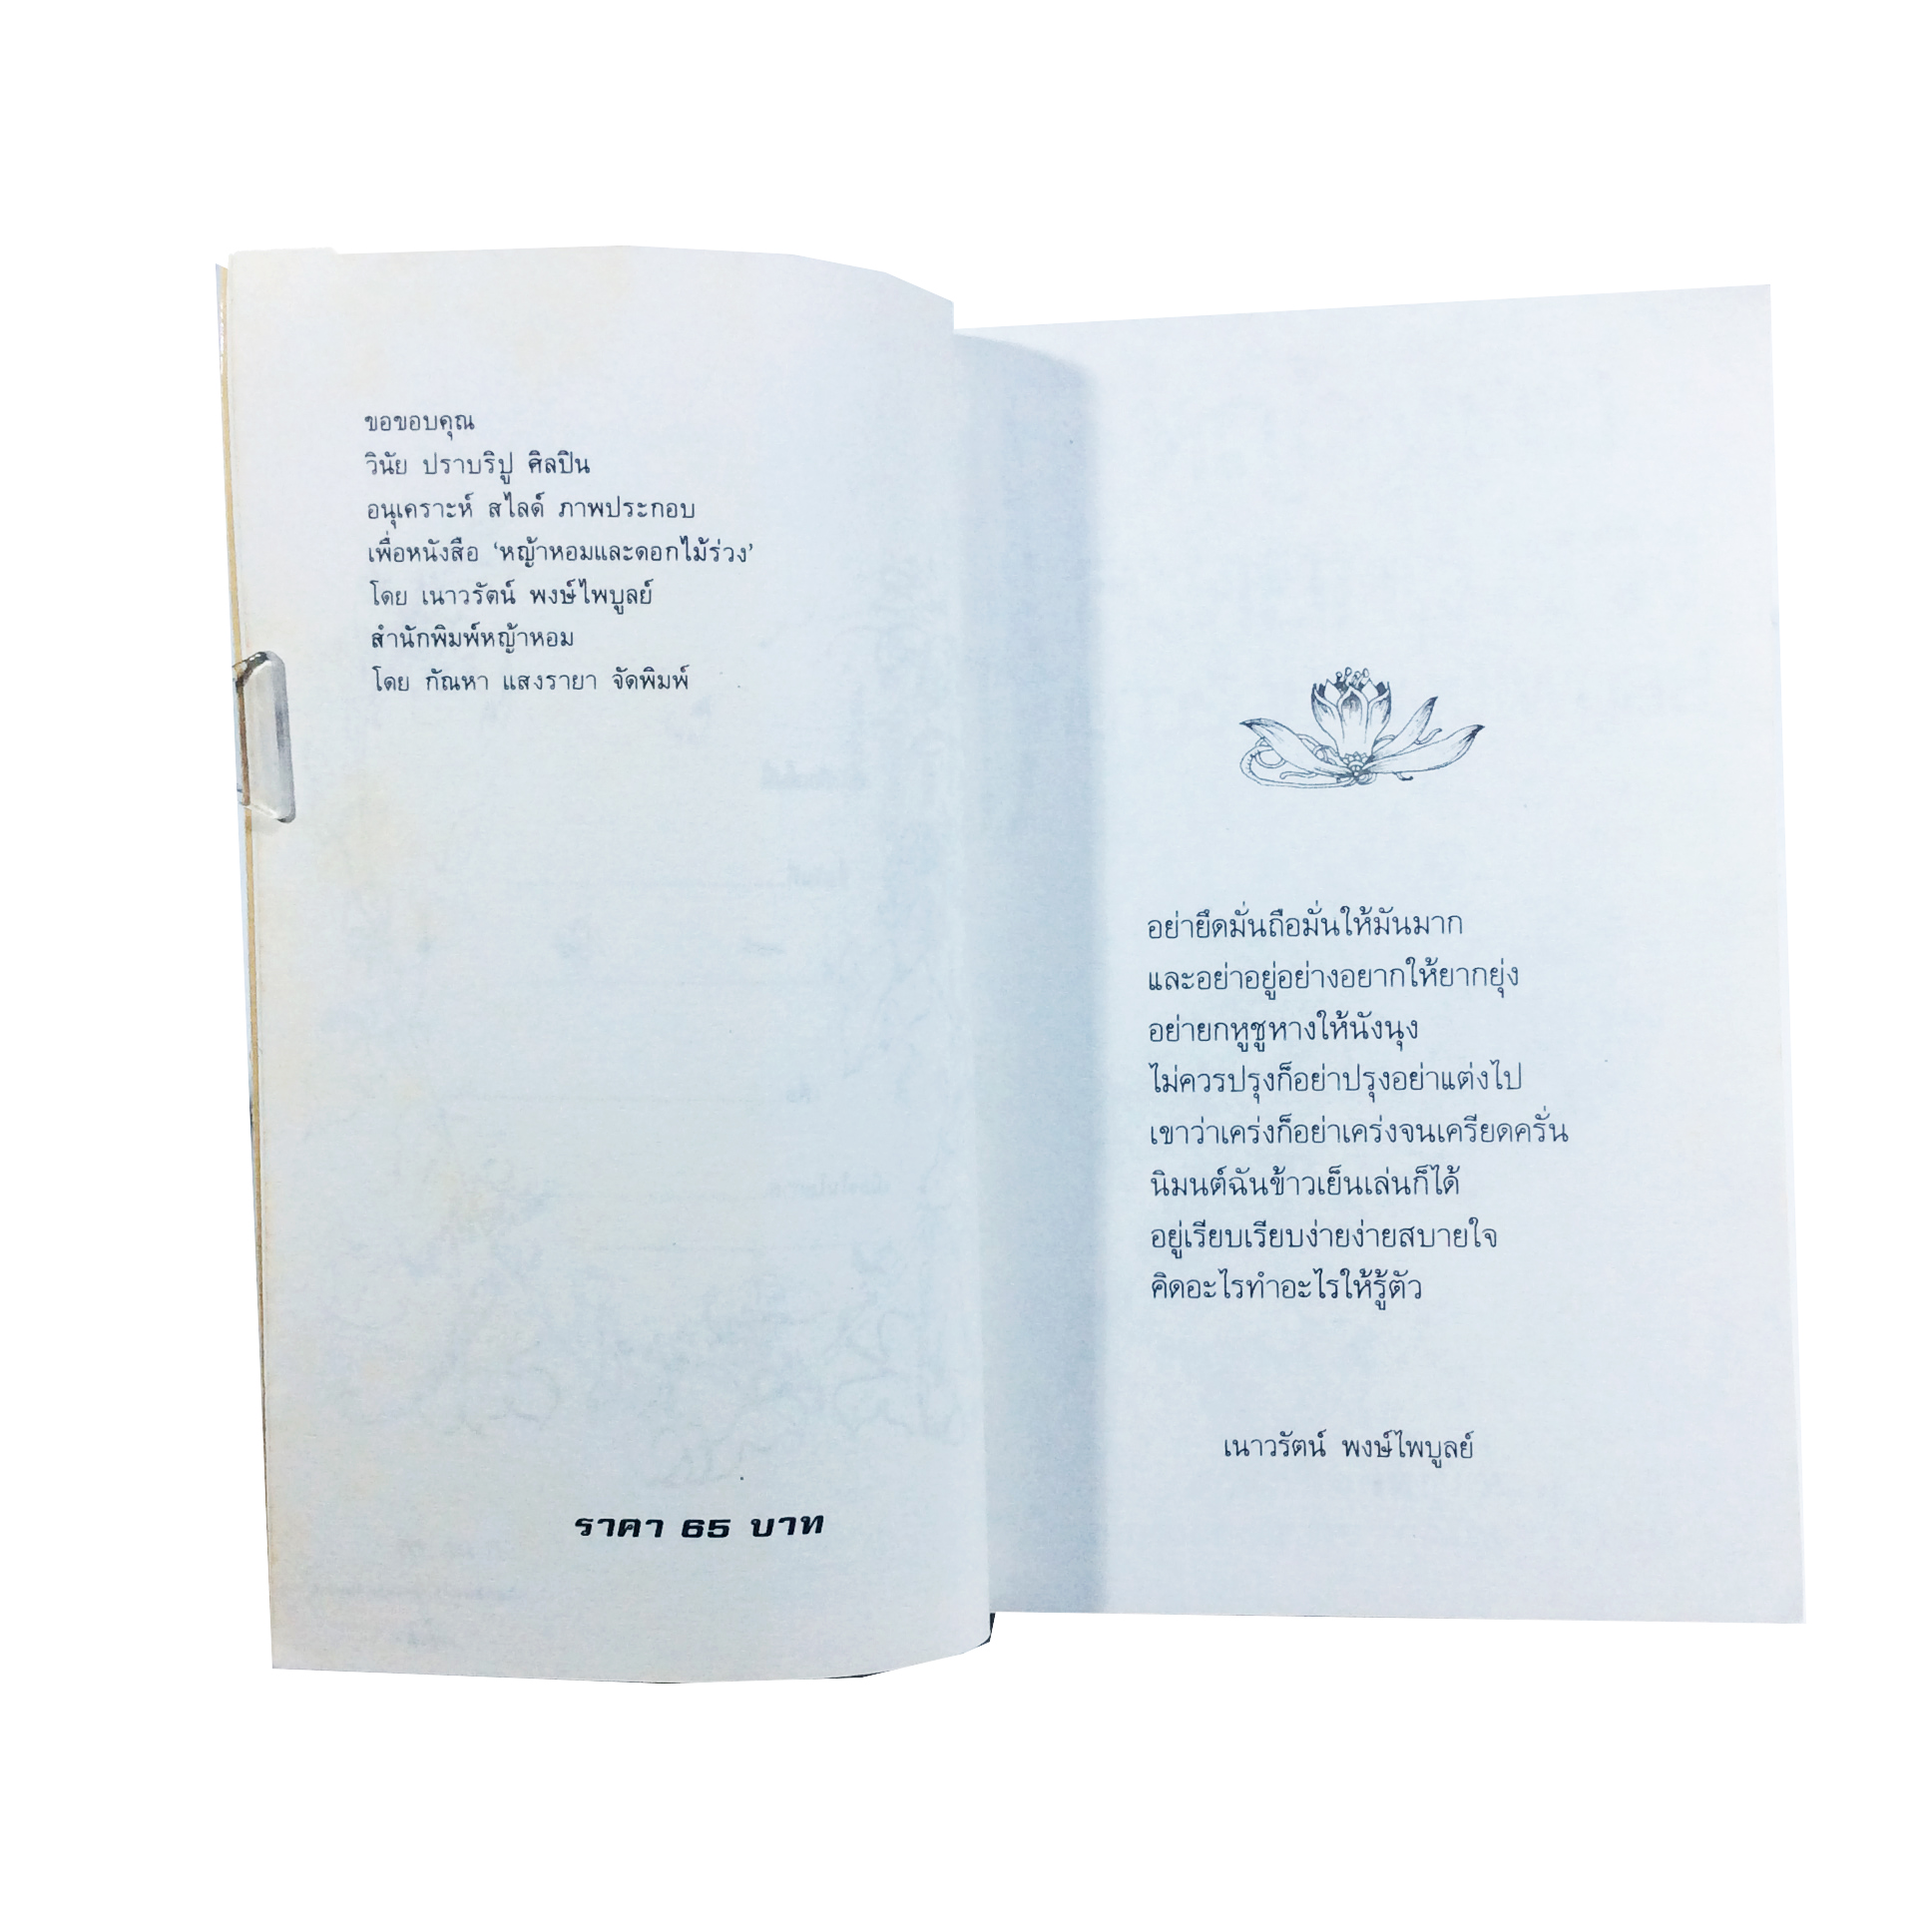 ขอขอบคุณ
วินัย ปราบริปู ศิลปิน
อนุเคราะห์ สไลด์ ภาพประกอบ
เพื่อหนังสือ ‘หญ้าหอมและดอกไม้ร่วง’
โดย เนาวรัตน์ พงษ์ไพบูลย์
สำนักพิมพ์หญ้าหอม
โดย กัณหา แสงรายา จัดพิมพ์
ราคา 65 บาท
อย่ายึดมั่นถือมั่นให้มันมาก
และอย่าอยู่อย่างอยากให้ยากยุ่ง
อย่ายกหูชูหางให้นังนุง
ไม่ควรปรุงก็อย่าปรุงอย่าแต่งไป
เขาว่าเคร่งก็อย่าเคร่งจนเครียดครั่น
นิมนต์ฉันข้าวเย็นเล่นก็ได้
อยู่เรียบเรียบง่ายง่ายสบายใจ
คิดอะไรทำอะไรให้รู้ตัว
เนาวรัตน์ พงษ์ไพบูลย์